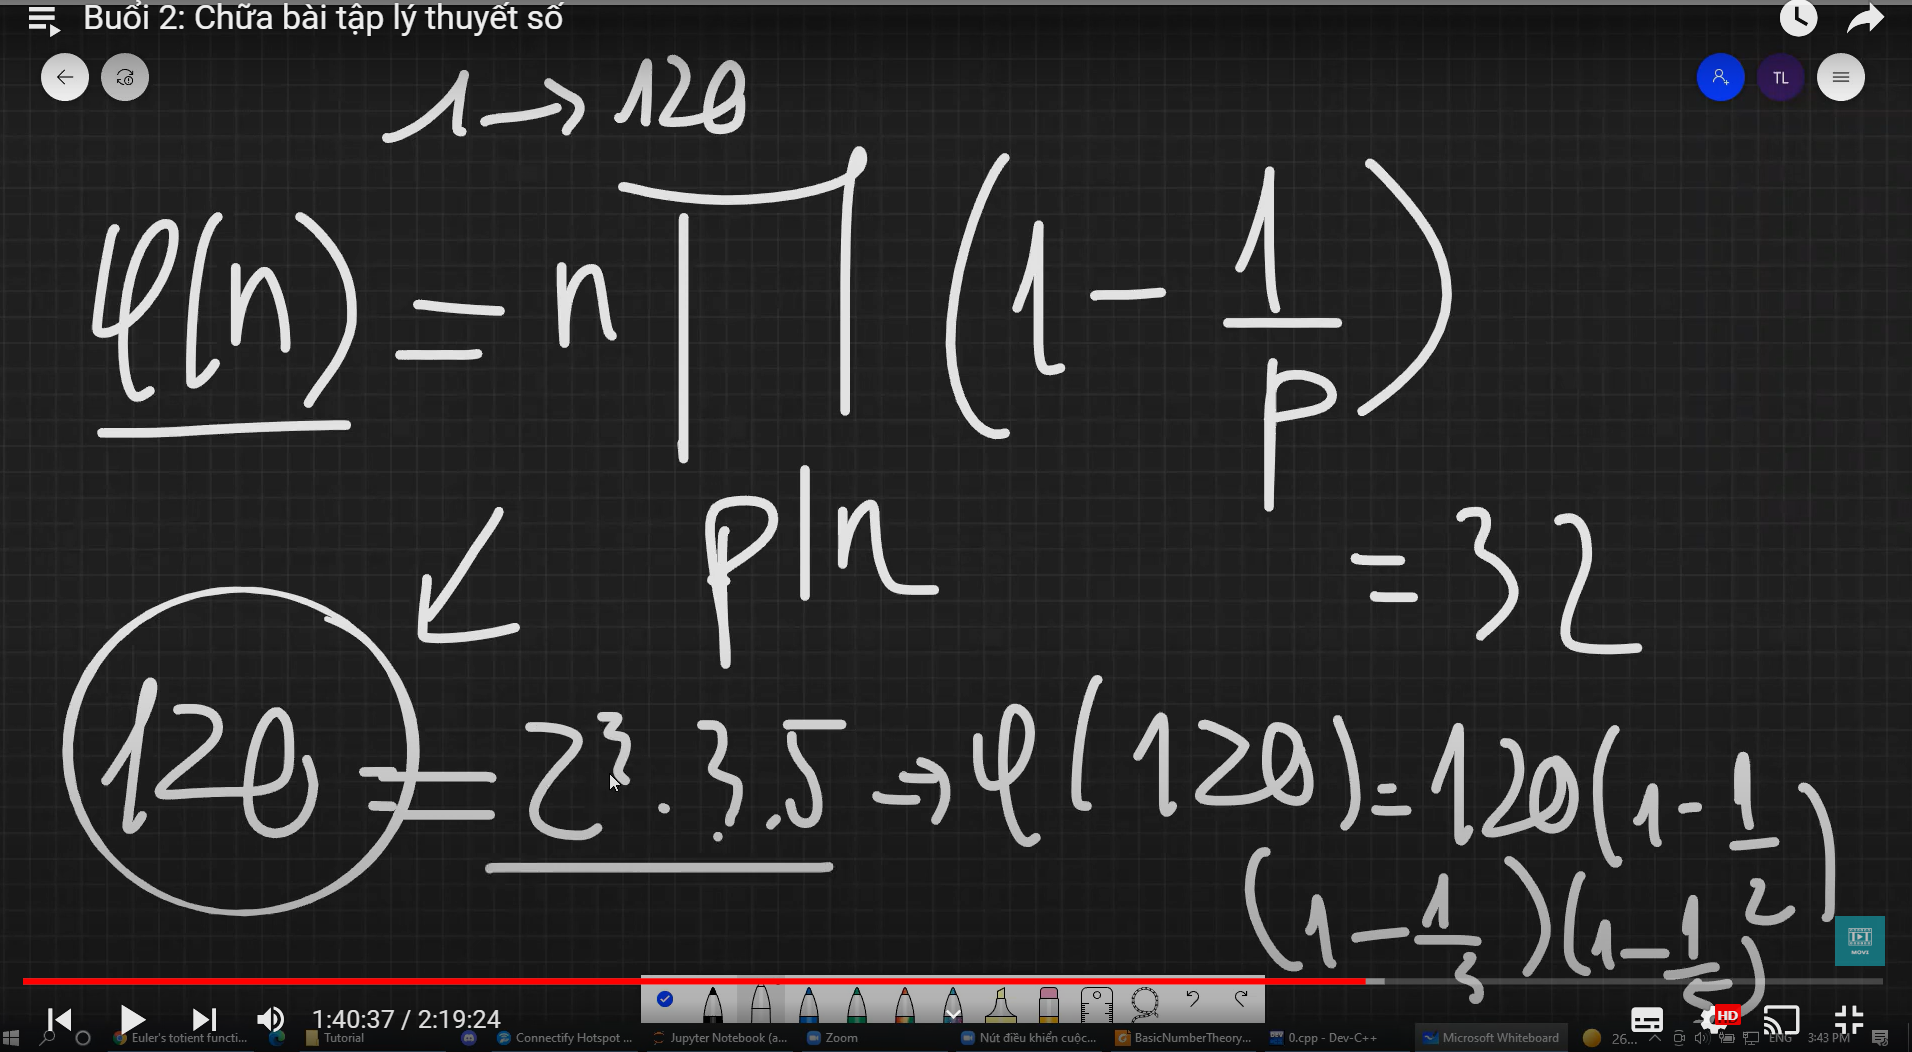 Buổi 2: Chữa bài tập lý thuyết số
TL
1 → 120
φ(n) = n ∏ (1 - 1/p)
p|n
= 32
120 = 2³.3.5 ⇒ φ(120) = 120(1 - 1/2)
(1 - 1/3)(1 - 1/5)
MOVI
1:40:37 / 2:19:24
HD
Euler's totient functi...
Tutorial
Connectify Hotspot ...
Jupyter Notebook (a...
Zoom
Nút điều khiển cuộc...
BasicNumberTheory...
0.cpp - Dev-C++
Microsoft Whiteboard
26...
ENG
3:43 PM